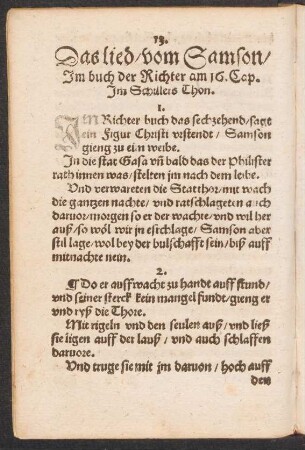 13.
Das lied/vom Samson/
Im buch der Richter am 16. Cap.
Im Schillers Thon.
1.
IM Richter buch das sechzehend/sagt
ein Figur Christi verstendt/ Samson
gieng zu ein weibe.
In die stat Gasa vñ bald das der Philister
rath innen was/stelten jm nach dem leibe.
Vnd verwareten die Statthor/mit wach
die gantzen nachte/ vnd ratschlageten auch
daruor/morgen so er der wachte/ vnd wil her
auß/so wöl wir jn erschlage/ Samson aber
stil lage/wol bey der bulschafft sein/biß auff
mitnachte nein.
2.
¶ Do er auff wacht zu handt auff stund/
vnd seiner sterck kein mangel fundt/gieng er
vnd ryß die Thore.
Mit rigeln vnd den seulen auß/ vnd ließ
sie ligen auff der lauß/ vnd auch schlaffen
daruore.
Vnd truge sie mit jm daruon/ hoch auff
den